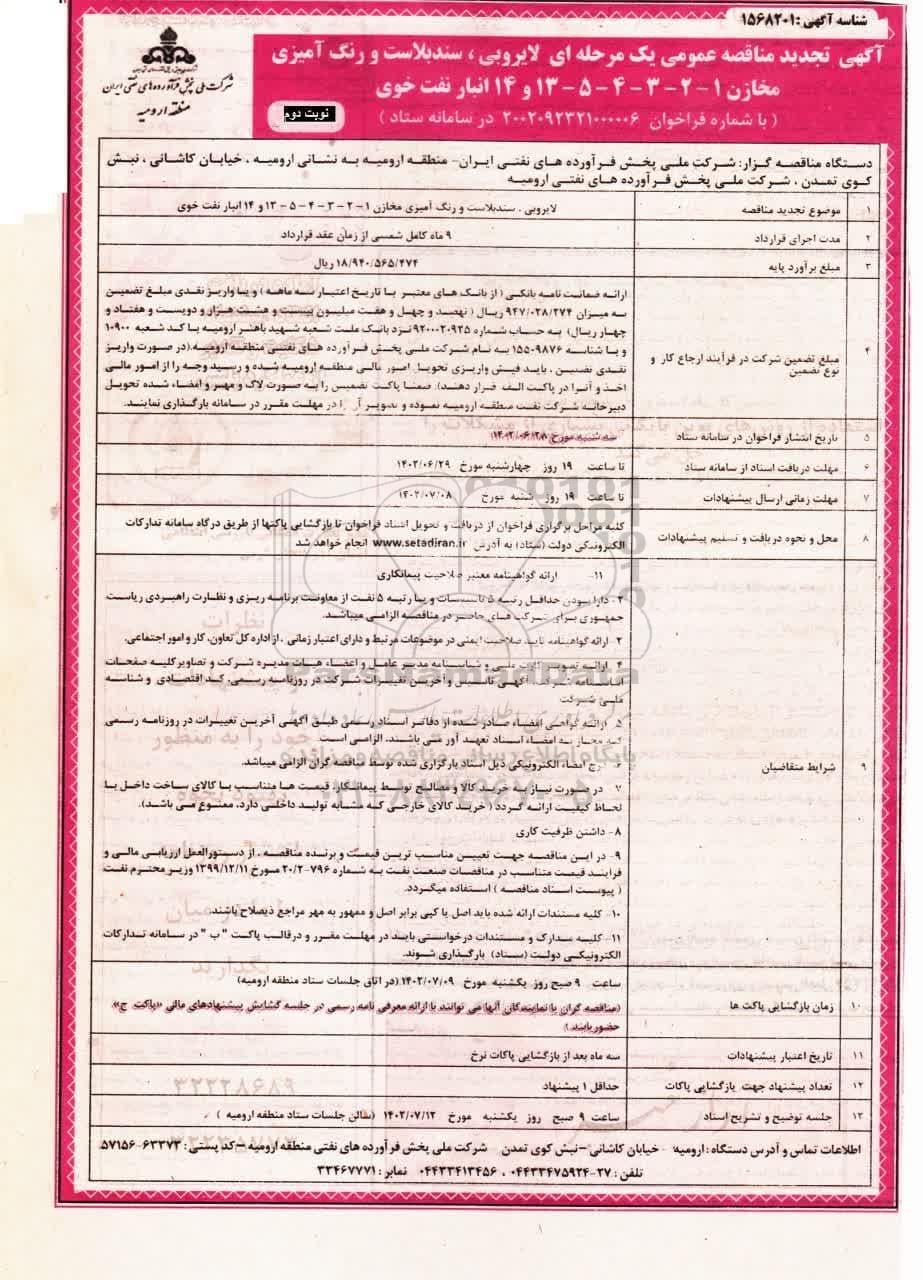 شناسه آگهی : ۱۵۶۸۲۰۱
آگهی تجدید مناقصه عمومی یک مرحله ای لایروبی ، سندبلاست و رنگ آمیزی
مخازن ۱ - ۲ - ۳ - ۴ - ۵ - ۱۳ و ۱۴ انبار نفت خوی
( با شماره فراخوان ۲۰۰۲۰۹۲۳۲۱۰۰۰۰۰۶ در سامانه ستاد )
نوبت دوم
شرکت ملی پخش فرآورده های نفتی ایران
منطقه ارومیه
دستگاه مناقصه گزار: شرکت ملی پخش فرآورده های نفتی ایران- منطقه ارومیه به نشانی ارومیه ، خیابان کاشانی ، نبش
کوی تمدن ، شرکت ملی پخش فرآورده های نفتی ارومیه
۱ موضوع تجدید مناقصه لایروبی ، سندبلاست و رنگ آمیزی مخازن ۱ - ۲ - ۳ - ۴ - ۵ - ۱۳ و ۱۴ انبار نفت خوی
۲ مدت اجرای قرارداد ۹ ماه کامل شمسی از زمان عقد قرارداد
۳ مبلغ برآورد پایه ۱۸/۹۴۰/۵۶۵/۴۷۴ ریال
۴ مبلغ تضمین شرکت در فرآیند ارجاع کار و نوع تضمین
ارائه ضمانت نامه بانکی ( از بانک های معتبر با تاریخ اعتبار سه ماهه ) و یا واریز نقدی مبلغ تضمین
به میزان ۹۴۷/۰۲۸/۲۷۴ ریال ( نهصد و چهل و هفت میلیون بیست و هشت هزار و دویست و هفتاد و
چهار ریال) به حساب شماره ۹۲۰۰۰۲۰۹۳۵ نزد بانک ملت شعبه شهید باهنر ارومیه با کد شعبه ۱۰۹۰۰
و با شناسه ۱۵۵۰۹۸۷۶ به نام شرکت ملی پخش فرآورده های نفتی منطقه ارومیه.(در صورت واریز
نقدی تضمین ، باید فیش واریزی تحویل امور مالی منطقه ارومیه شده و رسید وجه را از امور مالی
اخذ و آنرا در پاکت الف قرار دهند). ضمنا پاکت تضمین را به صورت لاک و مهر و امضاء شده تحویل
دبیرخانه شرکت نفت منطقه ارومیه نموده و تصویر آن را در مهلت مقرر در سامانه بارگذاری نمایند.
۵ تاریخ انتشار فراخوان در سامانه ستاد سه شنبه مورخ ۱۴۰۲/۰۶/۲۸
۶ مهلت دریافت اسناد از سامانه ستاد تا ساعت ۱۹ روز چهارشنبه مورخ ۱۴۰۲/۰۶/۲۹
۷ مهلت زمانی ارسال پیشنهادات تا ساعت ۱۹ روز شنبه مورخ ۱۴۰۲/۰۷/۰۸
۸ محل و نحوه دریافت و تسلیم پیشنهادات
کلیه مراحل برگزاری فراخوان از دریافت و تحویل اسناد فراخوان تا بازگشایی پاکتها از طریق درگاه سامانه تدارکات
الکترونیکی دولت (ستاد) به آدرس www.setadiran.ir انجام خواهد شد
۹ شرایط متقاضیان
۱- ارائه گواهینامه معتبر صلاحیت پیمانکاری
۲- دارا بودن حداقل رتبه ۵ تاسیسات و یا رتبه ۵ نفت از معاونت برنامه ریزی و نظارت راهبردی ریاست
جمهوری برای شرکت های حاضر در مناقصه الزامی میباشد.
۳- ارائه گواهینامه تایید صلاحیت ایمنی در موضوعات مرتبط و دارای اعتبار زمانی ، از اداره کل تعاون، کار و امور اجتماعی.
۴- ارائه تصویر کارت ملی و شناسنامه مدیر عامل و اعضاء هیات مدیره شرکت و تصاویر کلیه صفحات
اساسنامه شرکت، آگهی تاسیس و آخرین تغییرات شرکت در روزنامه رسمی، کد اقتصادی و شناسه
ملی شرکت
۵- ارائه گواهی امضاء صادر شده از دفاتر اسناد رسمی طبق آگهی آخرین تغییرات در روزنامه رسمی
که مجاز به امضاء اسناد تعهد آور می باشند، الزامی است
۶- درج امضاء الکترونیکی ذیل اسناد بارگزاری شده توسط مناقصه گران الزامی میباشد.
۷- در صورت نیاز به خرید کالا و مصالح توسط پیمانکار، قیمت ها متناسب با کالای ساخت داخل با
لحاظ کیفیت ارائه گردد ( خرید کالای خارجی که مشابه تولید داخلی دارد، ممنوع می باشد).
۸- داشتن ظرفیت کاری
۹- در این مناقصه جهت تعیین مناسب ترین قیمت و برنده مناقصه ، از دستورالعمل ارزیابی مالی و
فرایند قیمت متناسب در مناقصات صنعت نفت به شماره ۷۹۶-۲۰/۲ مورخ ۱۳۹۹/۱۲/۱۱ وزیر محترم نفت
( پیوست اسناد مناقصه ) استفاده میگردد.
۱۰- کلیه مستندات ارائه شده باید اصل یا کپی برابر اصل و ممهور به مهر مراجع ذیصلاح باشند
۱۱- کلیه مدارک و مستندات درخواستی باید در مهلت مقرر و درقالب پاکت " ب " در سامانه تدارکات
الکترونیکی دولت (ستاد) بارگذاری شوند.
۱۰ زمان بازگشایی پاکت ها
ساعت ۹ صبح روز یکشنبه مورخ ۱۴۰۲/۰۷/۰۹ (در اتاق جلسات ستاد منطقه ارومیه)
(مناقصه گران یا نمایندگان آنها می توانند با ارائه معرفی نامه رسمی در جلسه گشایش پیشنهادهای مالی «پاکت ج»
حضور یابند )
۱۱ تاریخ اعتبار پیشنهادات سه ماه بعد از بازگشایی پاکات نرخ
۱۲ تعداد پیشنهاد جهت بازگشایی پاکات حداقل ۱ پیشنهاد
۱۳ جلسه توضیح و تشریح اسناد ساعت ۹ صبح روز یکشنبه مورخ ۱۴۰۲/۰۷/۱۲ (سالن جلسات ستاد منطقه ارومیه )
اطلاعات تماس و آدرس دستگاه : ارومیه - خیابان کاشانی-نبش کوی تمدن شرکت ملی پخش فرآورده های نفتی منطقه ارومیه -کد پستی : ۶۳۳۷۳-۵۷۱۵۶
تلفن : ۲۷-۰۴۴۳۳۴۷۵۹۲۴ ، ۰۴۴۳۳۴۱۳۴۵۶ نمابر : ۳۳۴۶۷۷۷۱
ParsNamadData
پایگاه اطلاع رسانی مناقصه و مزایده